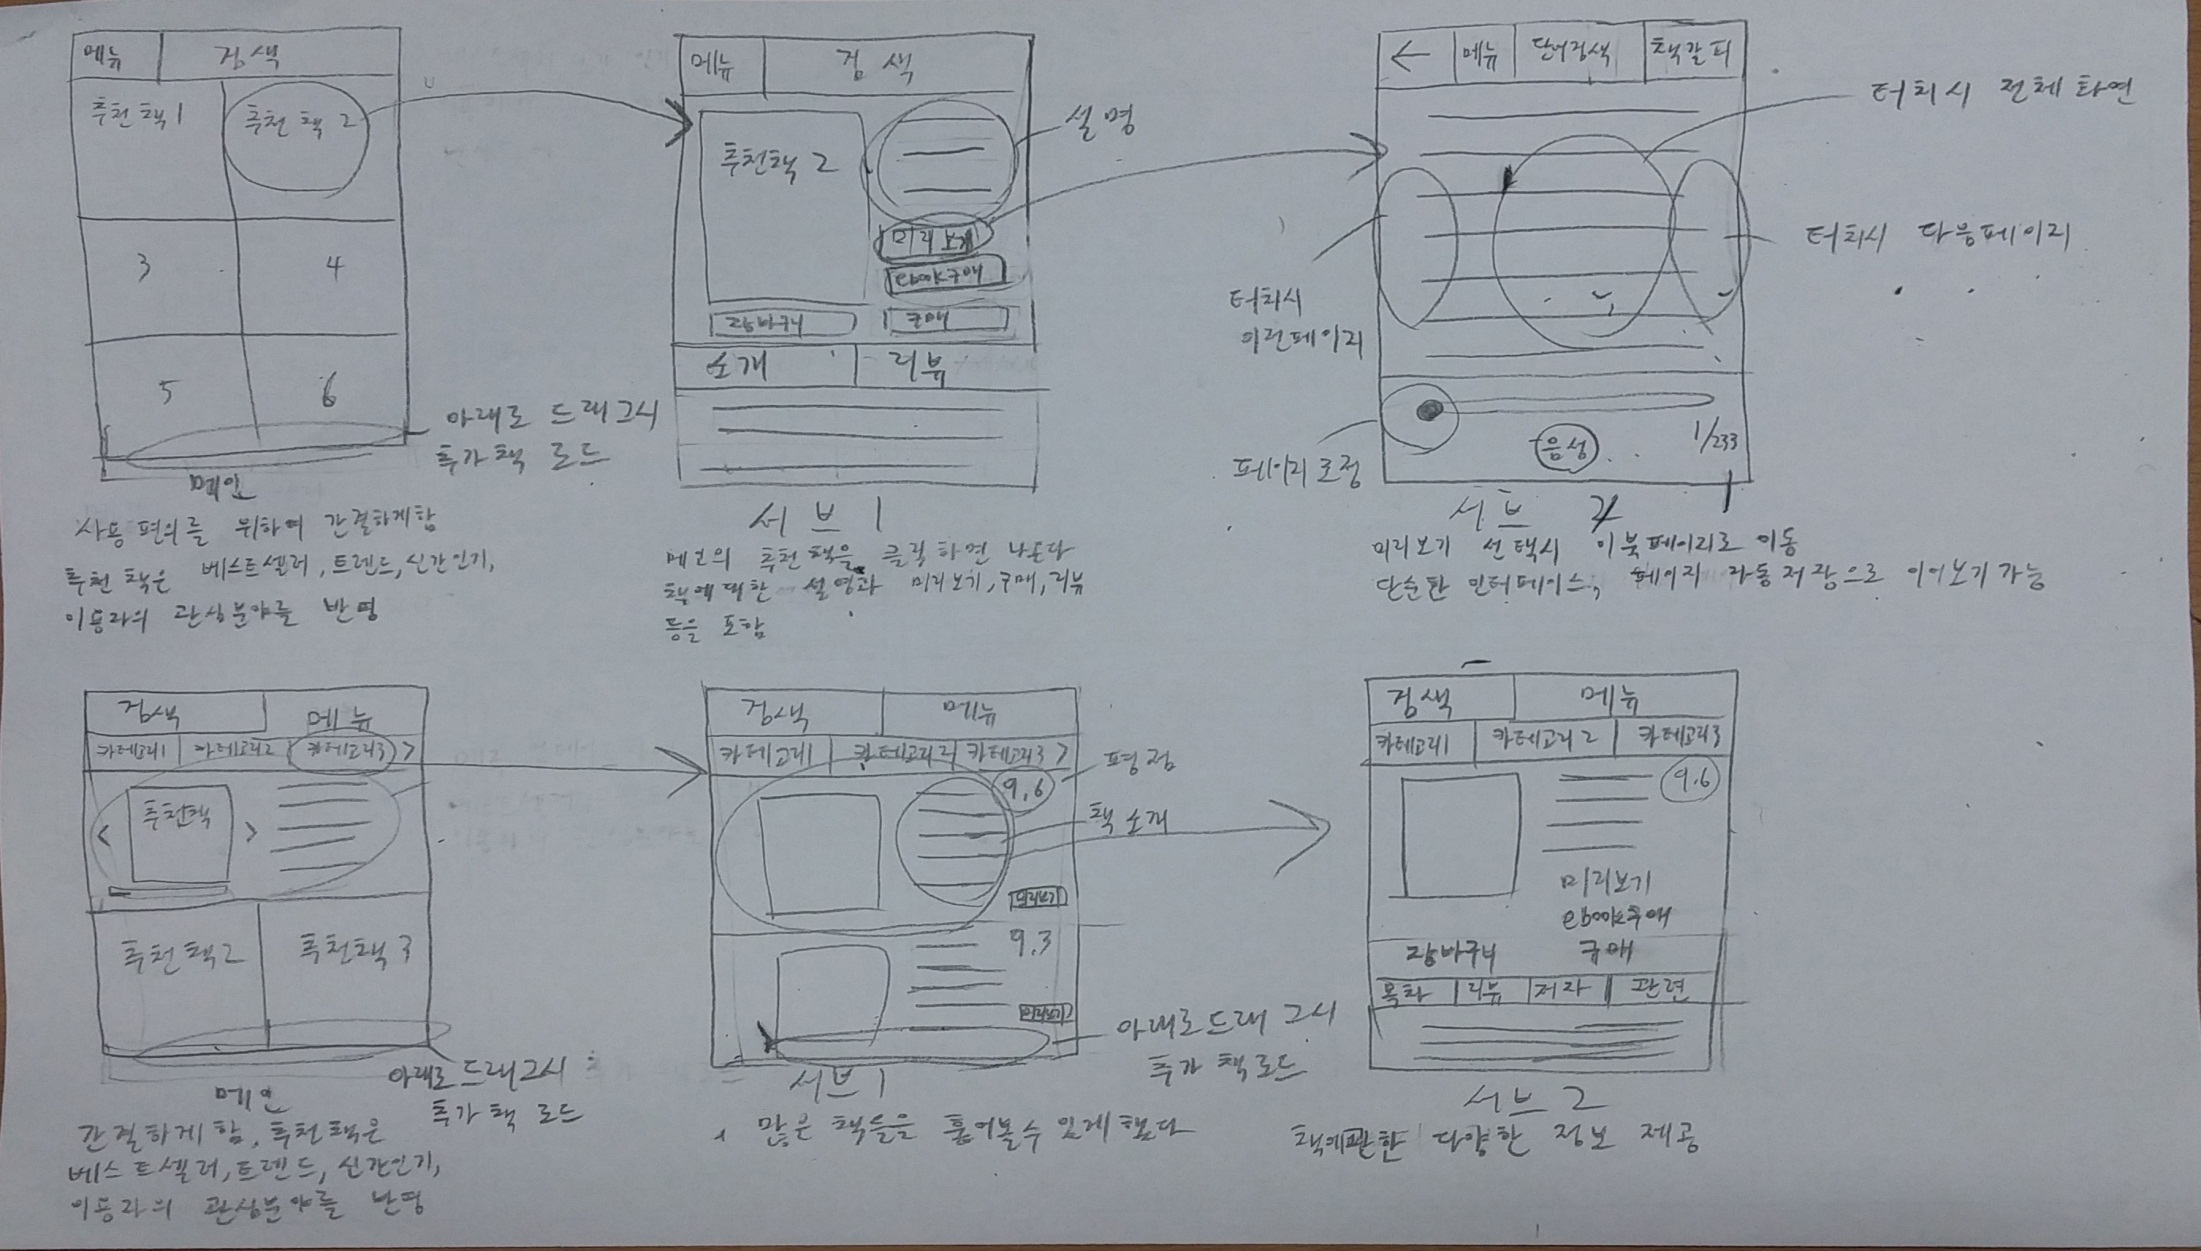 메뉴
검색
추천책1
추천책2
3
4
5
6
아래로 드래그시
추가책 로드
메인
사용편의를 위하여 간결하게함
추천책은 베스트셀러, 트렌드, 신간인기,
이용자의 관심분야를 반영
메뉴
검색
추천책2
설명
미리보기
ebook구매
장바구니
구매
소개
리뷰
서브1
메인의 추천책을 클릭하면 나온다
책에대한 설명과 미리보기, 구매, 리뷰
등을 포함
←
메뉴
단어검색
책갈피
터치시 전체화면
터치시 다음페이지
터치시
이전페이지
페이지조정
음성
1/233
서브 2
미리보기 선택시 이북페이지로 이동
단순한 인터페이스, 페이지 자동저장으로 이어보기가능
검색
메뉴
카테고리1
카테고리2
카테고리3 >
<
추천책
>
추천책2
추천책3
아래로드래그시
추가책 로드
메인
간결하게함, 추천책은
베스트셀러, 트렌드, 신간인기,
이용자의 관심분야를 반영
검색
메뉴
카테고리1
카테고리2
카테고리3 >
9.6
평점
책소개
미리보기
9.3
미리보기
아래로드래그시
추가책로드
서브1
많은 책들을 훑어볼수 있게 했다
검색
메뉴
카테고리1
카테고리2
카테고리3
9.6
미리보기
ebook구매
장바구니
구매
목차
리뷰
저자
관련
서브2
책에관한 다양한 정보 제공